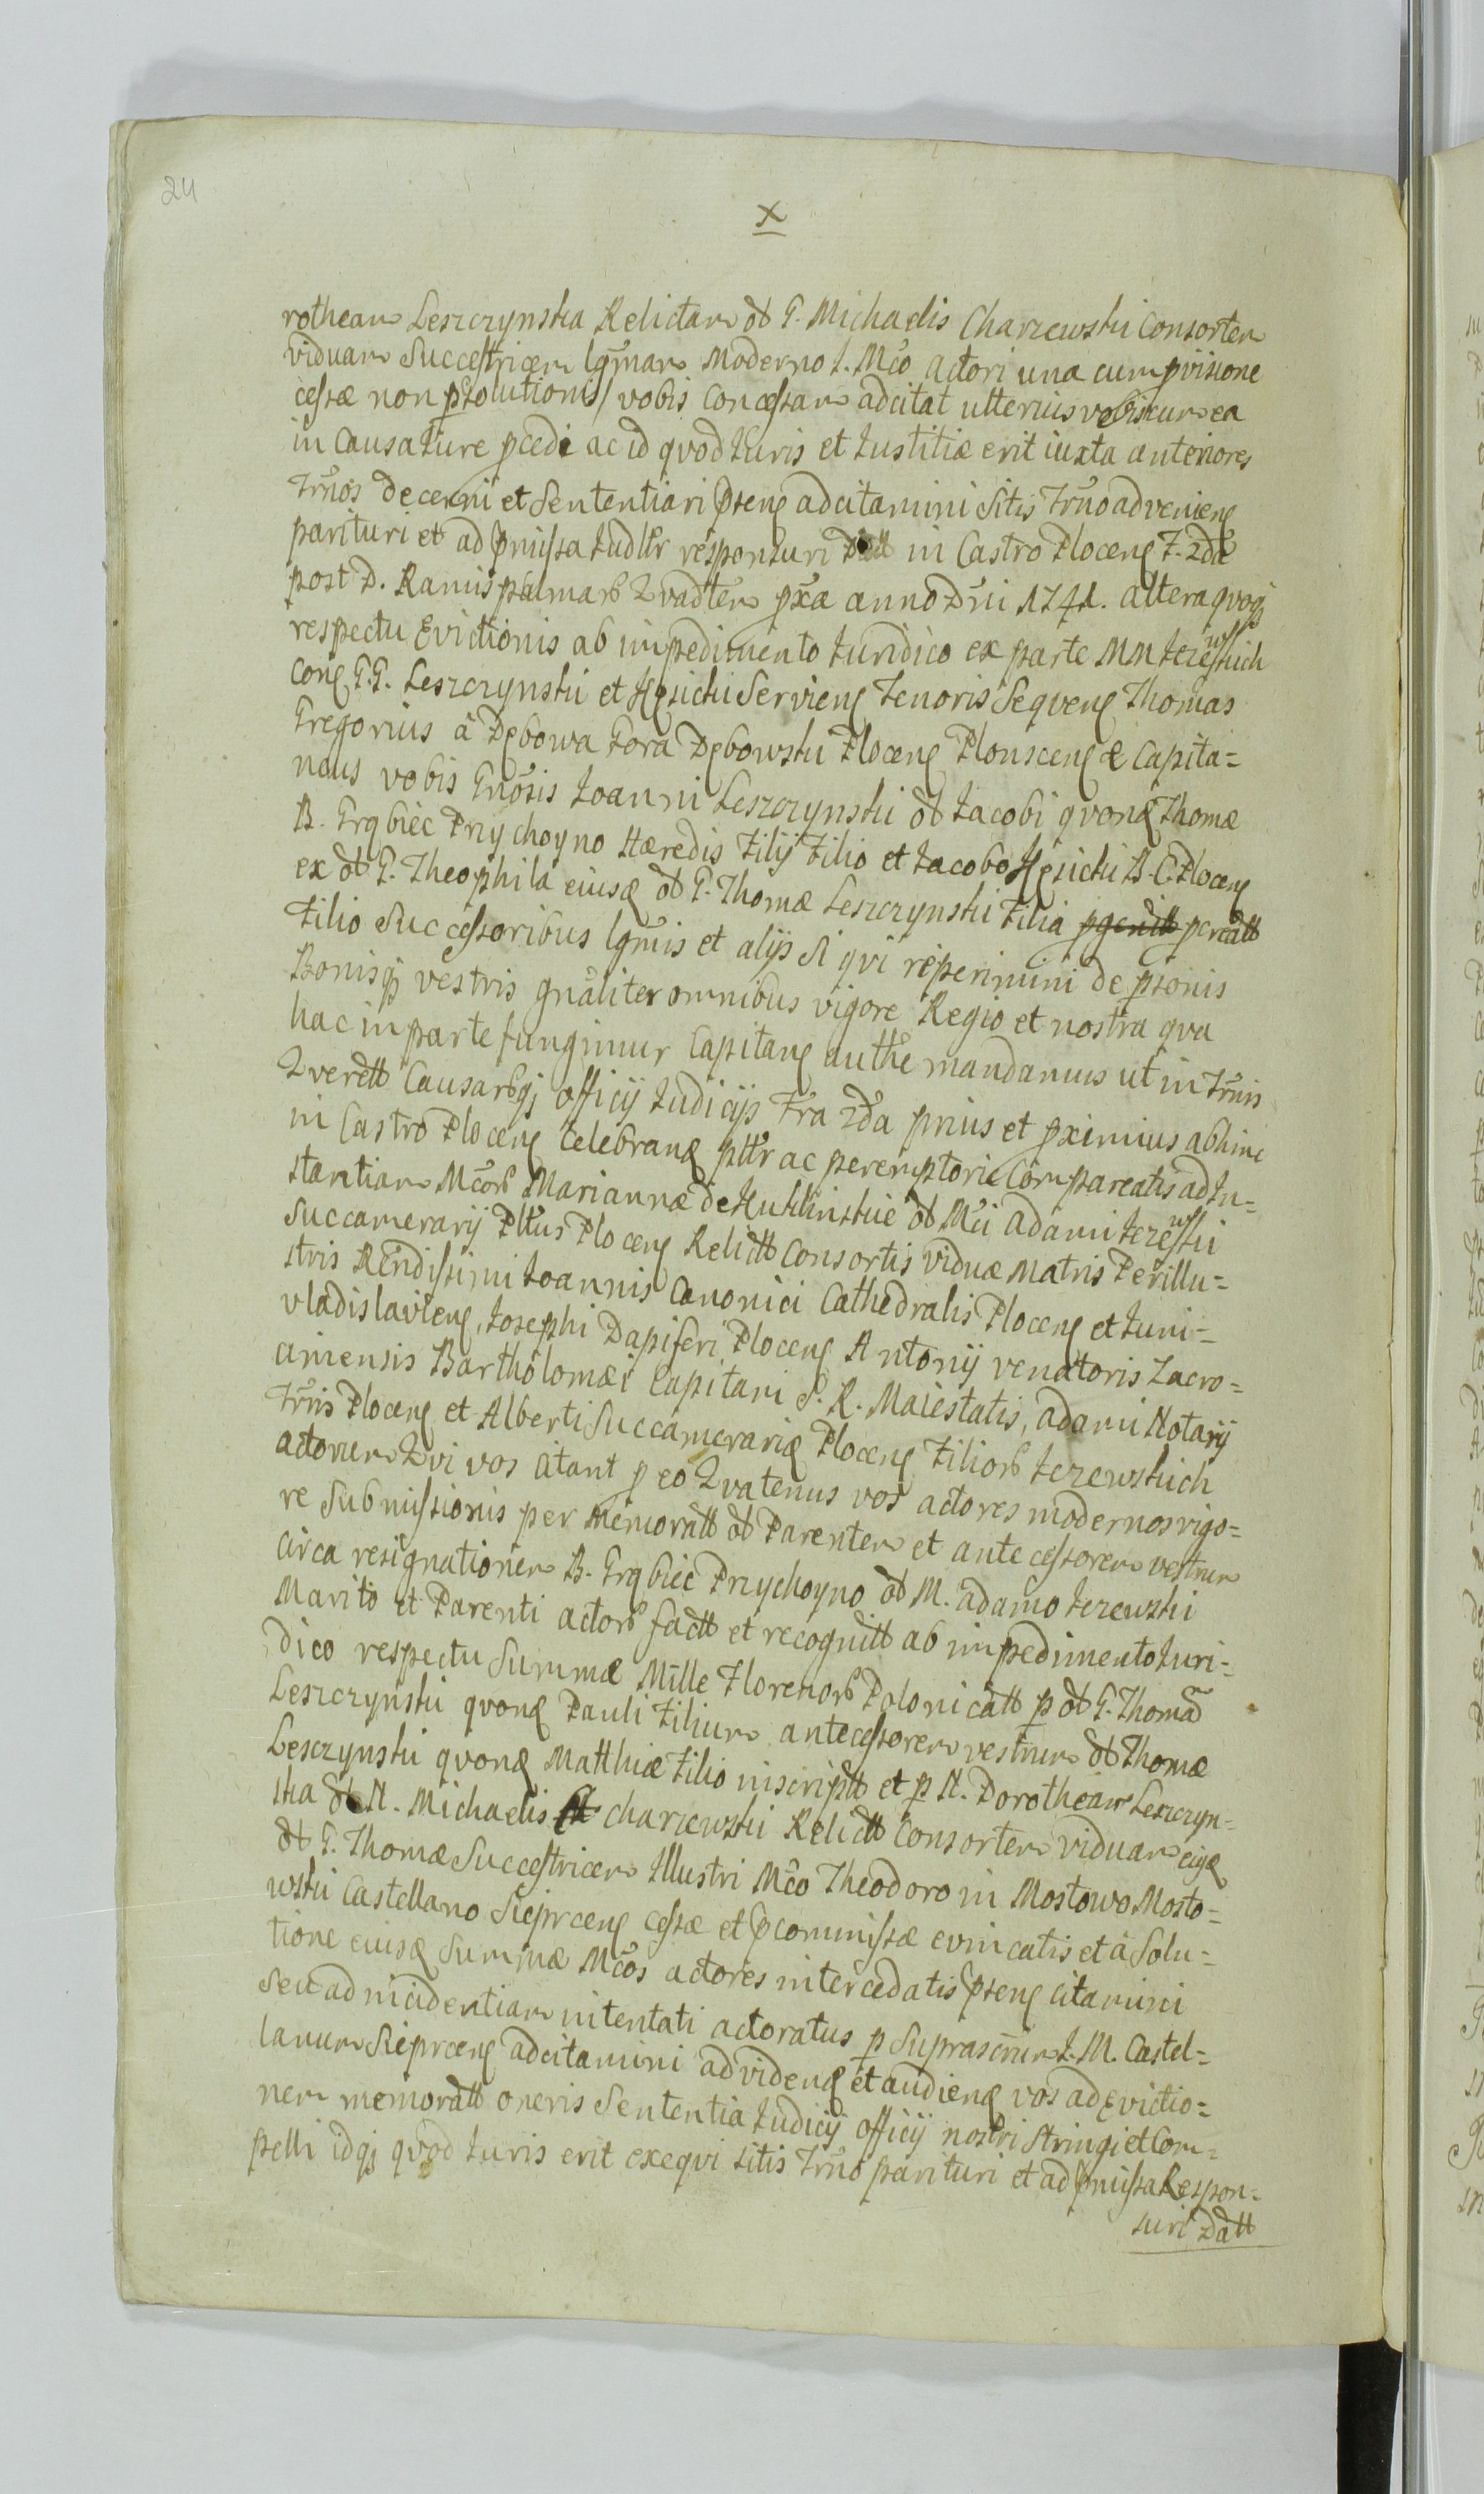 24
X
rotheam Leszczynska Relictam ol G. Michaelis Charzewski Consortem
viduam Successtricem lgmam Moderno I. Mco actori una cum pvisione
cessæ non psolutionis/ vobis concessam adcitat ulterius vobiscum ea
in Causa Iure pcedi ac id qvod Iuris et Iustitiæ erit iuxta anteriores
Trnos decerni et Sententiari pseng adcitamini Sitis Trno advenieng
parituri et ad pmissa Iudltr responsuri Datt in Castro Ploceng F. 2da
post D. Ramispalmarb Qvadtem pxa anno Dni 1741. altera qvoqj
respectu Evictionis ab impedimento Iuridico ex parte MM Iezewskich
cong G.G. Leszczynski et Hęsicki Servieng Tenoris Seqveng Thomas
Gregorius à Dębowa Gora Dębowski Ploceng Plonsceng & Capita=
neus vobis Gnosis Ioanni Leszczynski ol Iacobi qvong Thomæ
B. Grąbiec Przychoyno Hæredis Filij Filio et Iacobo Hęsicki B. C. Ploceng
ex ol G. Theophila eiusq ol G. Thomæ Leszczynski Filia pgenitt pcreatt
Filio Successoribus lgmis et alijs si qvi reperimini de psonis
Bonisqj vestris gnaliter omnibus vigore Regio et nostra qva
hac in parte fungimur Capitang authe mandamus ut in Trnis
Qverett Causarbqj officij Iudicijs Fra 2da prius et pximius abhinc
in Castro Ploceng celebrang pltr ac peremptorie Compareatis ad In=
stantiam Mcorb Mariannæ de Huklinskie ol Mci Adami Iezewski
Succamerarij Pltus Ploceng Relictt Consortis viduæ Matris Perillu=
stris Rendissimi Ioannis Canonici Cathedralis Ploceng et Iuni=
vladislavieng, Iosephi Dapiferi Ploceng Antonij venatoris Zacro=
cimensis Bartholomæi Capitani S. R. Maiestatis, Adami Notarij
Trris Ploceng et Alberti Succamerariq Ploceng Filiorb Iezewskich
actorum Qvi vos Citant p eo Qvatenus vos actores modernos vigo=
re Submissionis per Memoratt ol Parentem et antecessorem vestrum
circa resignationem B. Grąbiec Przychoyno ol M. Adamo Iezewski
Marito et Parenti actorb factt et recognitt ab impedimento Iuri=
dico respectu Summæ Mille Florenorb Polonicatt p ol G. Thomam
Leszczynski qvong Pauli Filium antecessorem vestrum ol Thomæ
Lesczynski qvong Matthiæ Filio inscriptt et p N. Dorotheam Leszczyn=
ska ol N. Michaelis Charzewski Relictt Consortem viduam eiusq
ol G. Thomæ Successtricem Illustri Mco Theodoro in Mostowo Mosto=
wski Castellano Sieprceng cessæ et pcommissæ evincatis et à Solu=
tione eiusq Summæ Mcos actores intercedatis pseng citamini
Seu ad incidentiam intentati actoratus p Suprascrum I. M. Castel=
lanum Sieprceng adcitamini ad videng et audieng vos ad Evictio=
nem memoratt oneris Sententia Iudicij officij nostri Stringi et Com=
pelli idqj qvod Iuris erit exeqvi sitis Trno parituri et ad pmissa Respon=
suri Datt